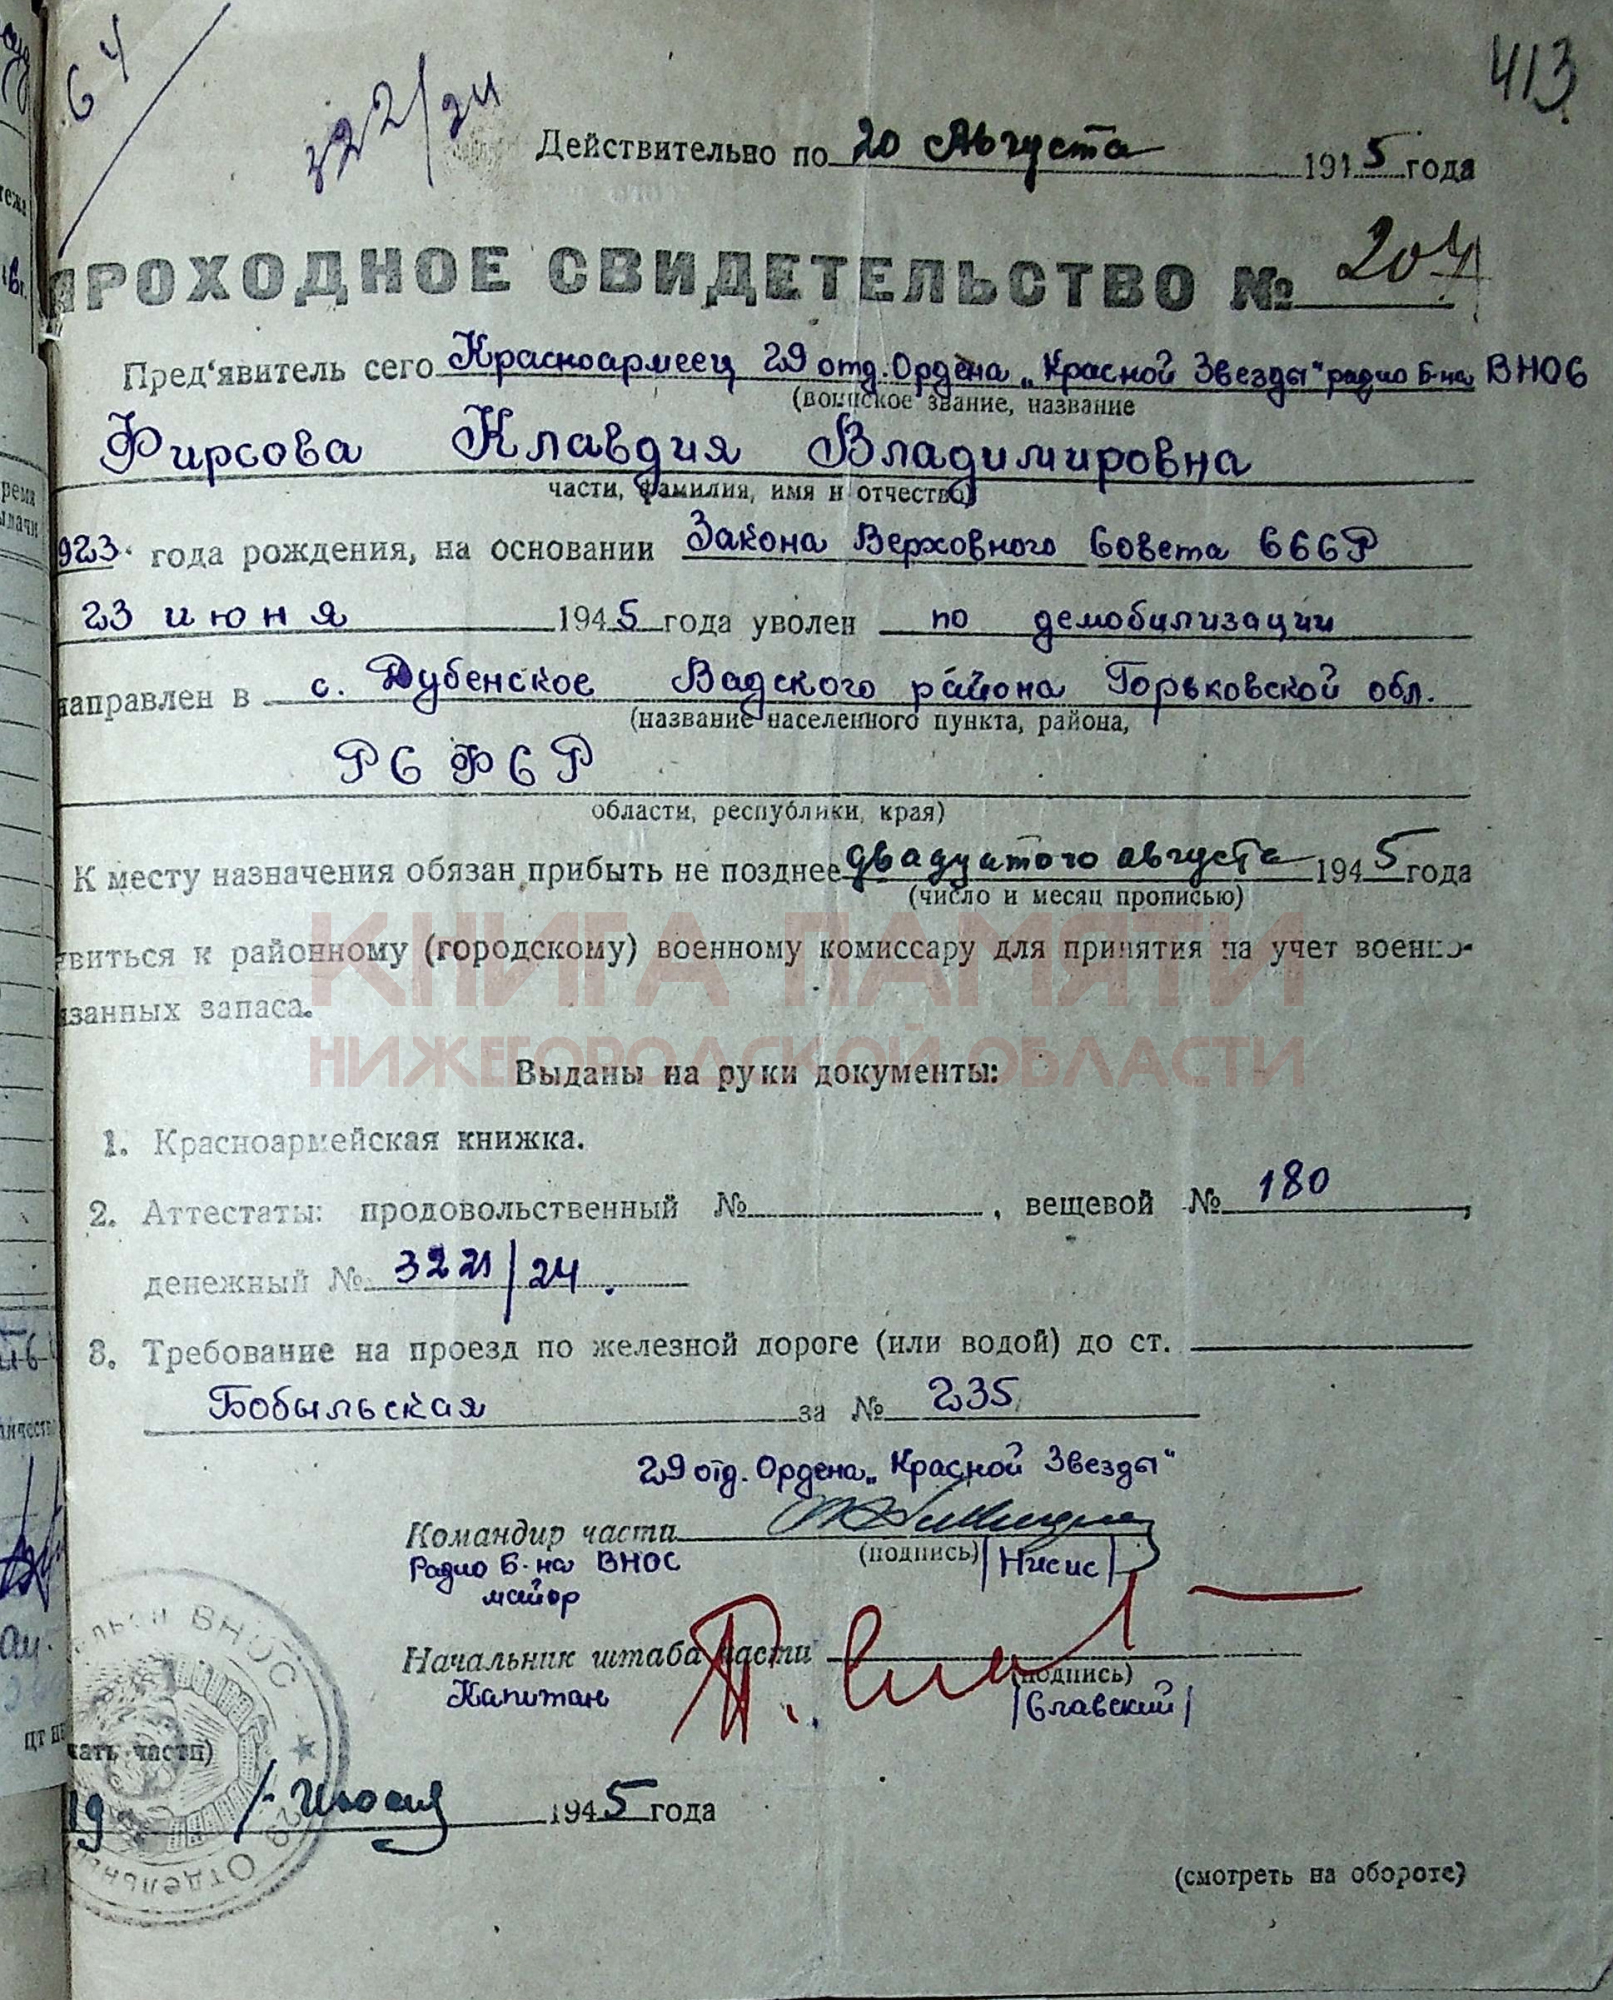 64
322/24
413
Действительно по 20 Августа 1945 года
ПРОХОДНОЕ СВИДЕТЕЛЬСТВО № 204
Пред'явитель сего Красноармеец 29 отд. Ордена „Красной Звезды" радио Б-на ВНОС
(воинское звание, название
Фирсова Клавдия Владимировна
части, фамилия, имя и отчество)
923 года рождения, на основании Закона Верховного Совета СССР
23 июня 1945 года уволен по демобилизации
направлен в с. Дубенское Вадского района Горьковской обл.
(название населенного пункта, района,
РСФСР
области, республики, края)
К месту назначения обязан прибыть не позднее двадцатого августа 1945 года
(число и месяц прописью)
явиться к районному (городскому) военному комиссару для принятия на учет военно-
язанных запаса.
КНИГА ПАМЯТИ
НИЖЕГОРОДСКОЙ ОБЛАСТИ
Выданы на руки документы:
1. Красноармейская книжка.
2. Аттестаты: продовольственный № , вещевой № 180,
денежный № 3221/24.
3. Требование на проезд по железной дороге (или водой) до ст.
Бобыльская за № 235
29 отд. Ордена „Красной Звезды"
Командир части
(подпись) /Нисис/
Радио Б-на ВНОС
майор
Начальник штаба части
(подпись)
Капитан /Славский/
чать части)
19 /- Июля 1945 года
(смотреть на обороте)